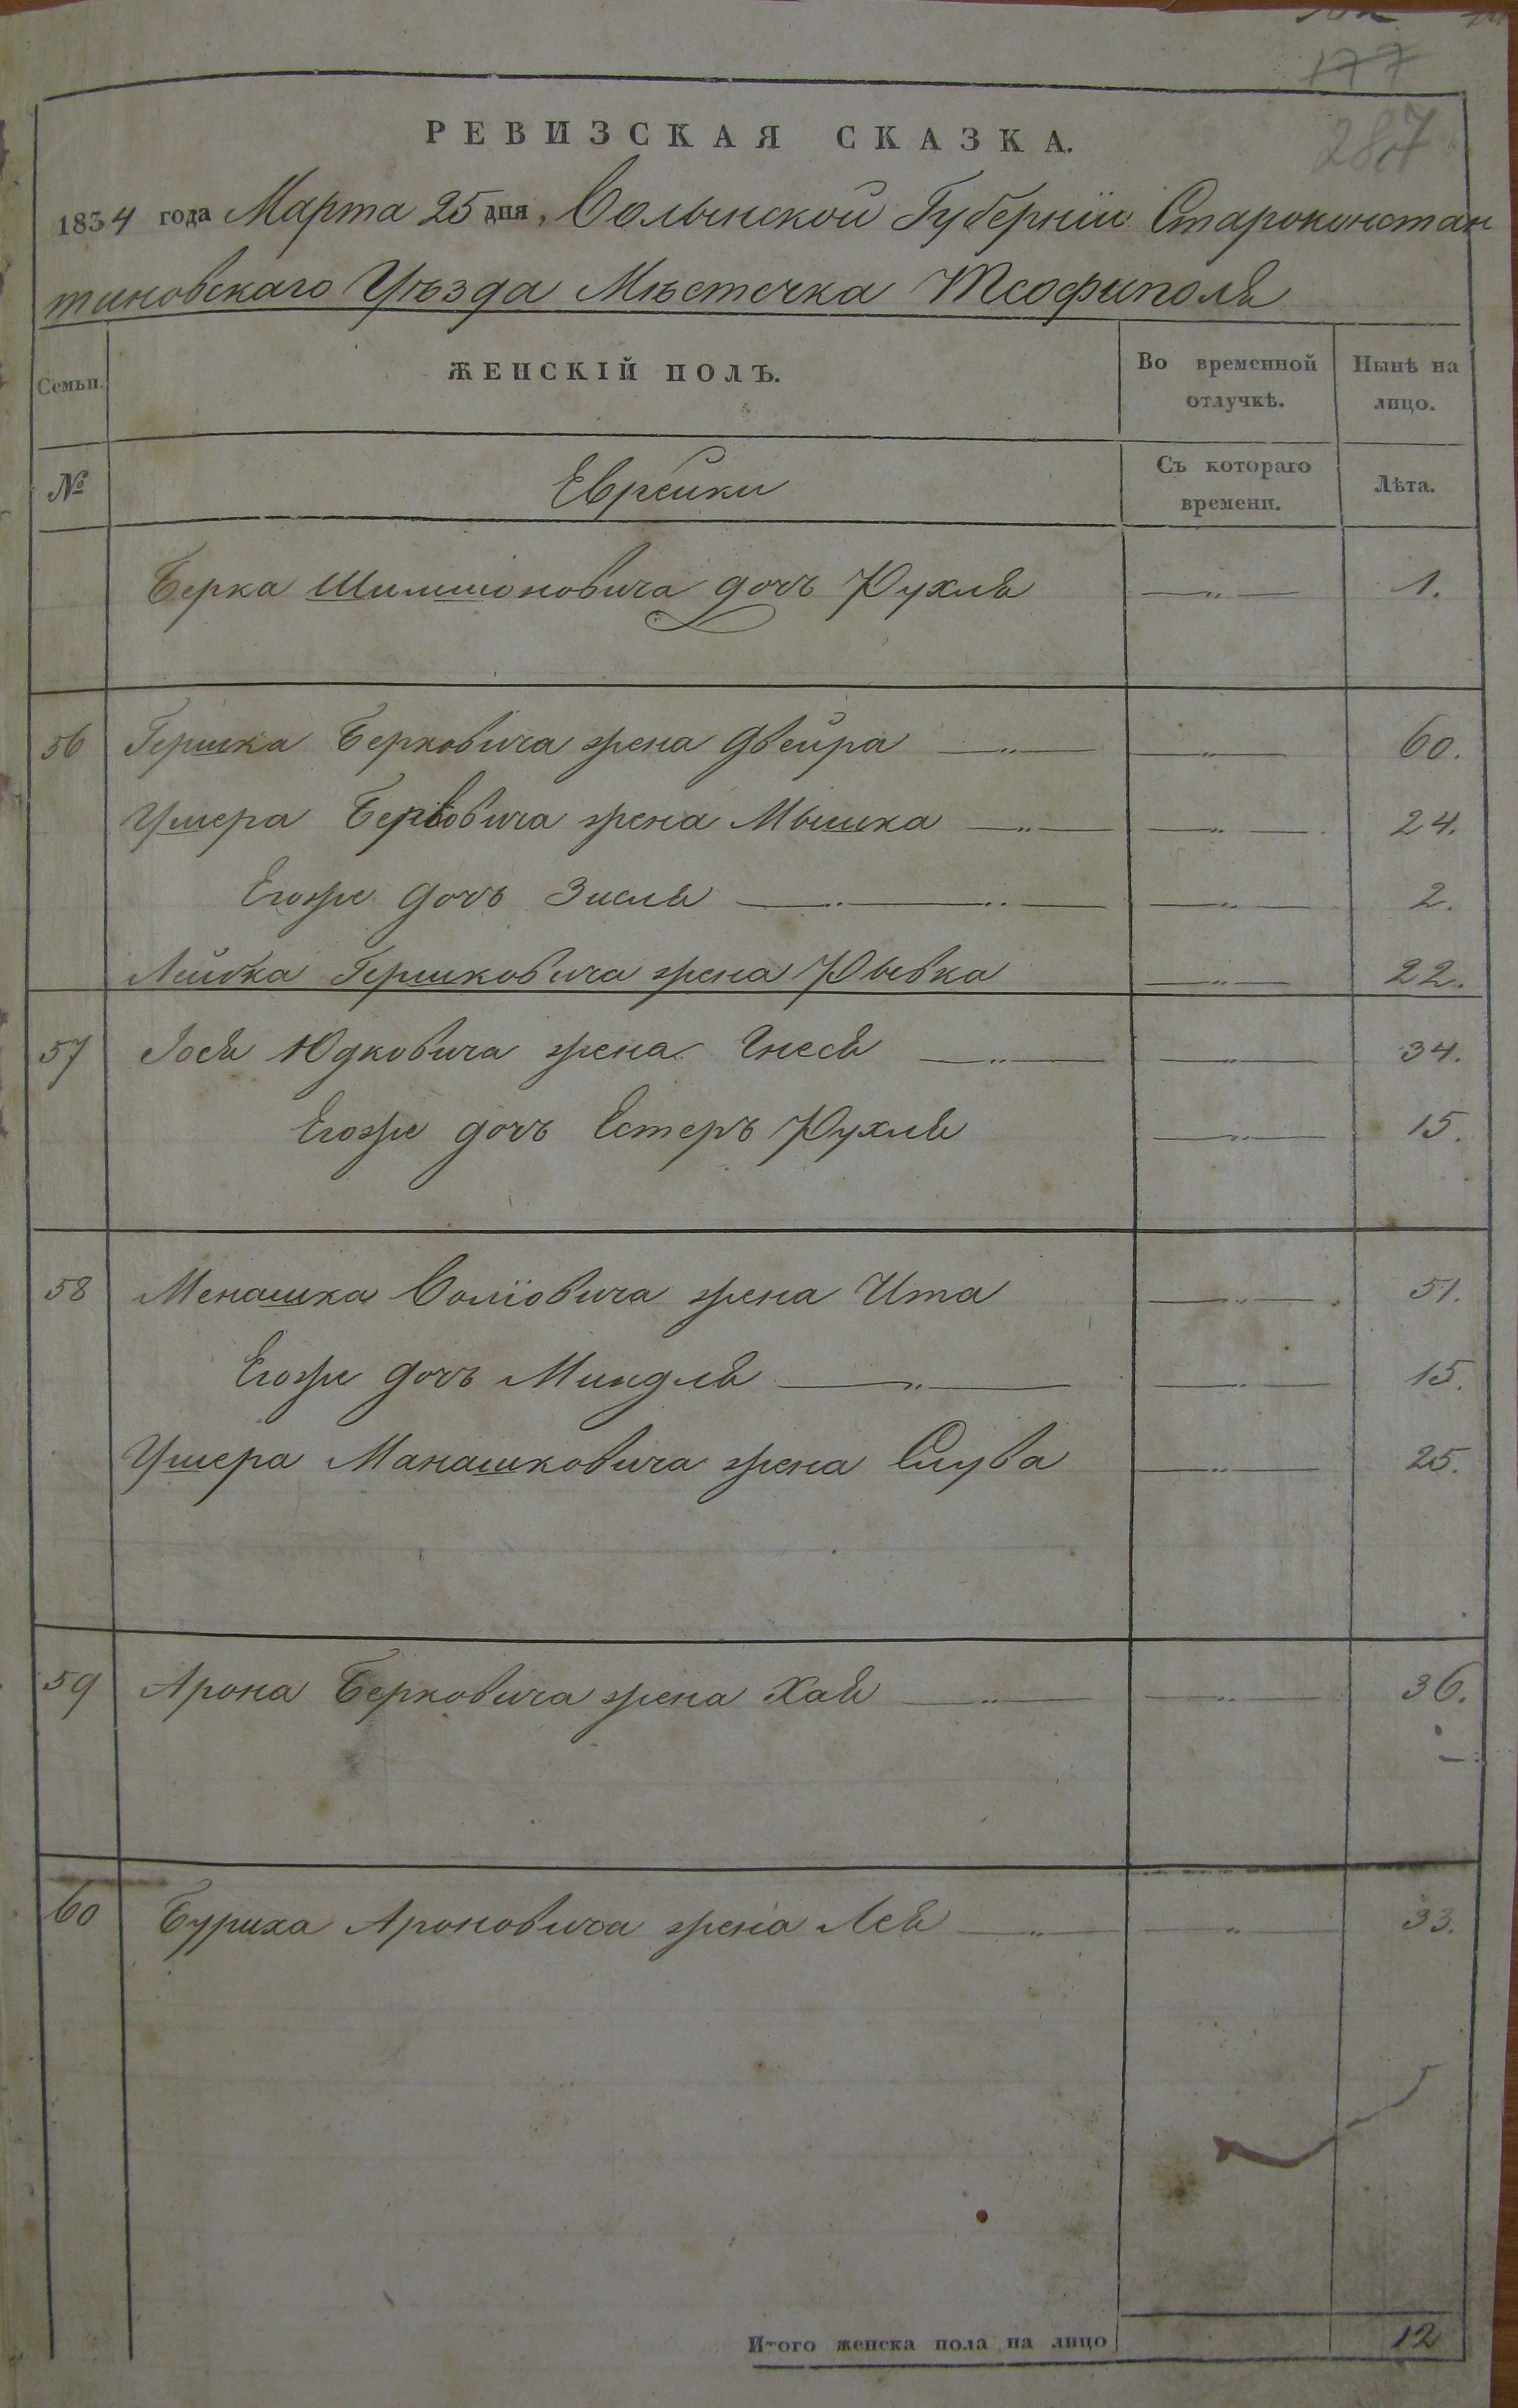 177
287
РЕВИЗСКАЯ СКАЗКА.
1834 года Марта 25 дня, Волынской Губернїи Староконстан
тиновскаго Уѣзда Мѣстечка Теофиполя
Семьи.
ЖЕНСКІЙ ПОЛЪ.
Во временной отлучкѣ.
Нынѣ на лицо.
№
Еврейки
Съ котораго времени.
Лѣта.
Берка Шимшоновича дочь Рухля —„— 1.
56 Гершка Берковича жена Двейра —„— —„— 60.
Ушера Берковича жена Мышка —„— —„— 24.
Егоже дочь Зисля —„— —„— 2.
Лейбка Гершковича жена Рывка —„— 22.
57 Іося Юдковича жена Гнеся —„— —„— 34.
Егоже дочь Естеръ Рухля —„— 15.
58 Менашка Волїовича жена Ита —„— 51.
Егоже дочь Миндля —„— —„— 15.
Ушера Манашковича жена Слува —„— 25.
59 Арона Берковича жена Хая —„— —„— 36.
60 Буриха Ароновича жена Лея —„— —„— 33.
Итого женска пола на лицо 12